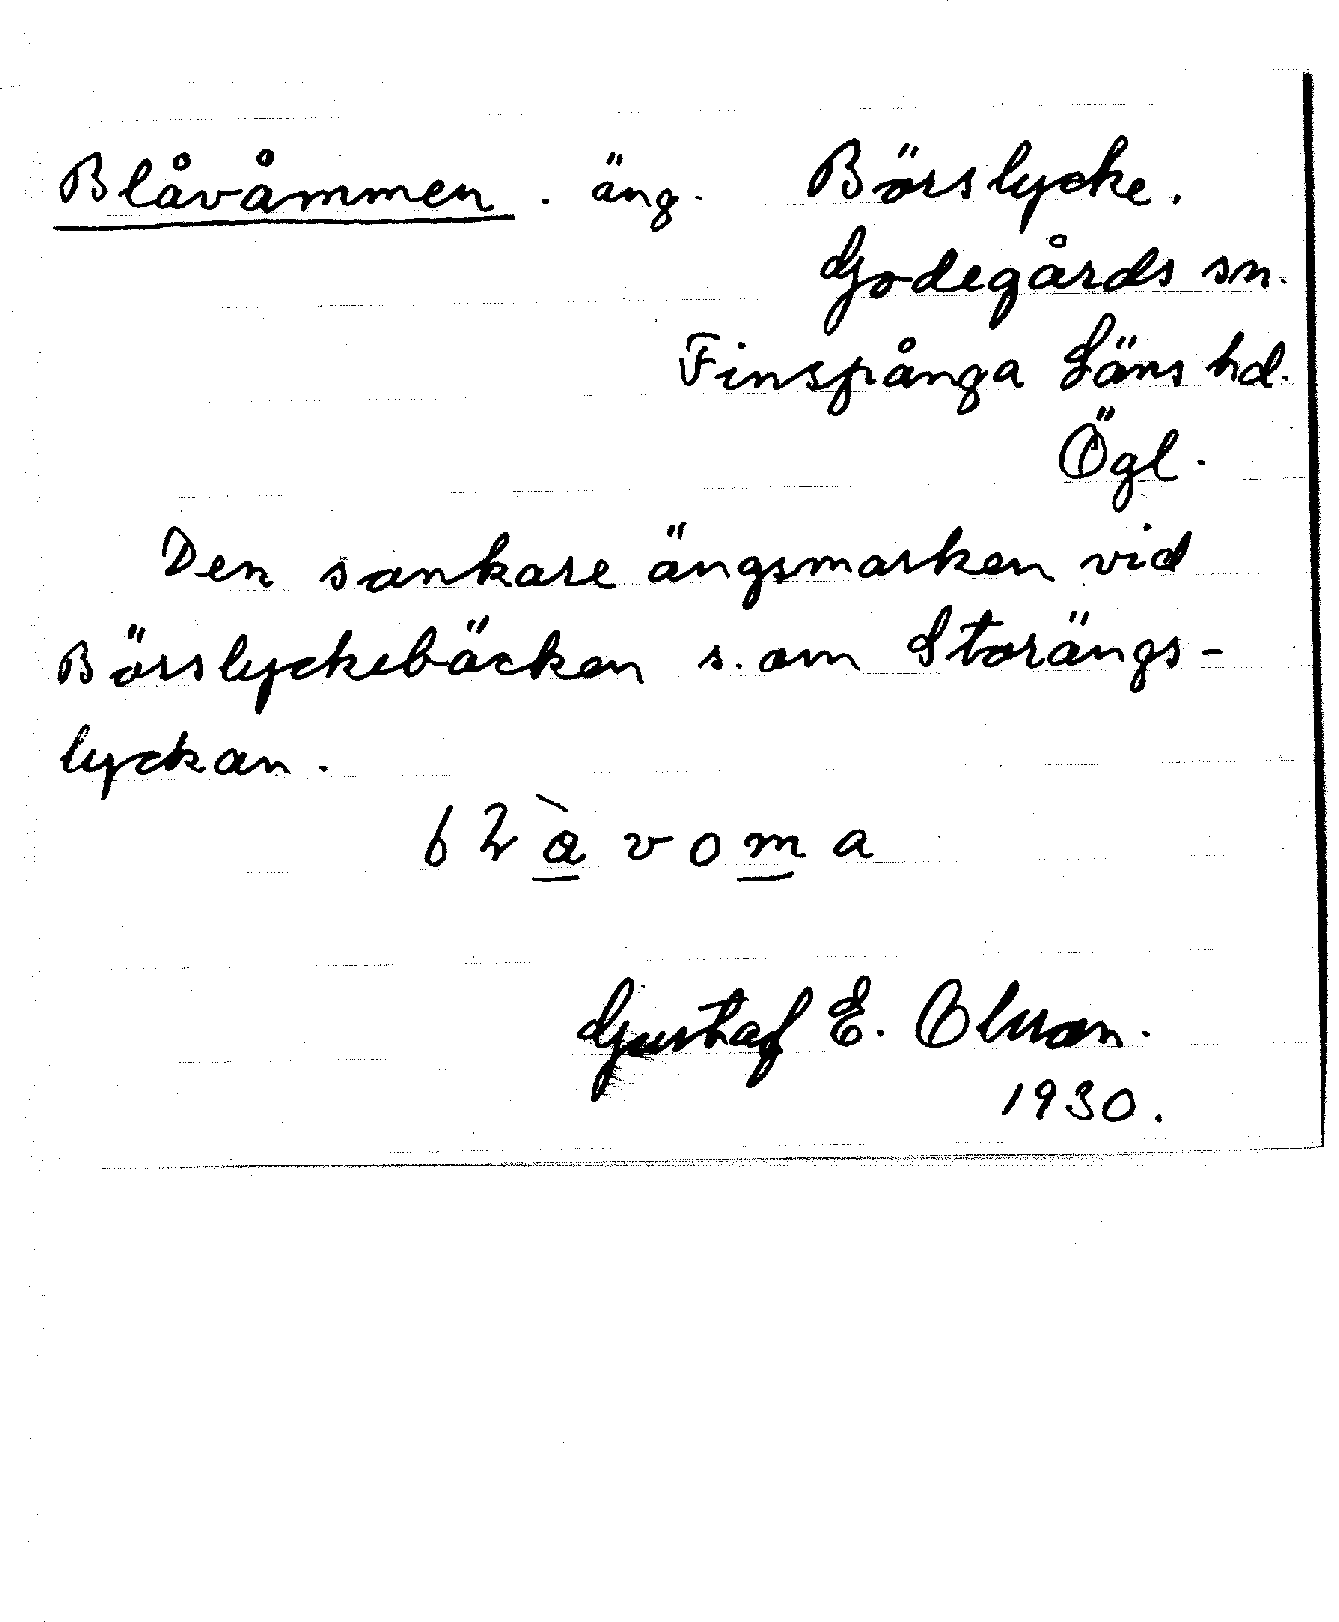 Blåvåmmen. äng. Börslycke.
Godegårds sn.
Finspånga Läns hd.
Ögl.
Den sankare ängsmarken vid
Börslyckebäcken s. om Storängs-
lyckan.
Gustaf E. Olsson.
1930.